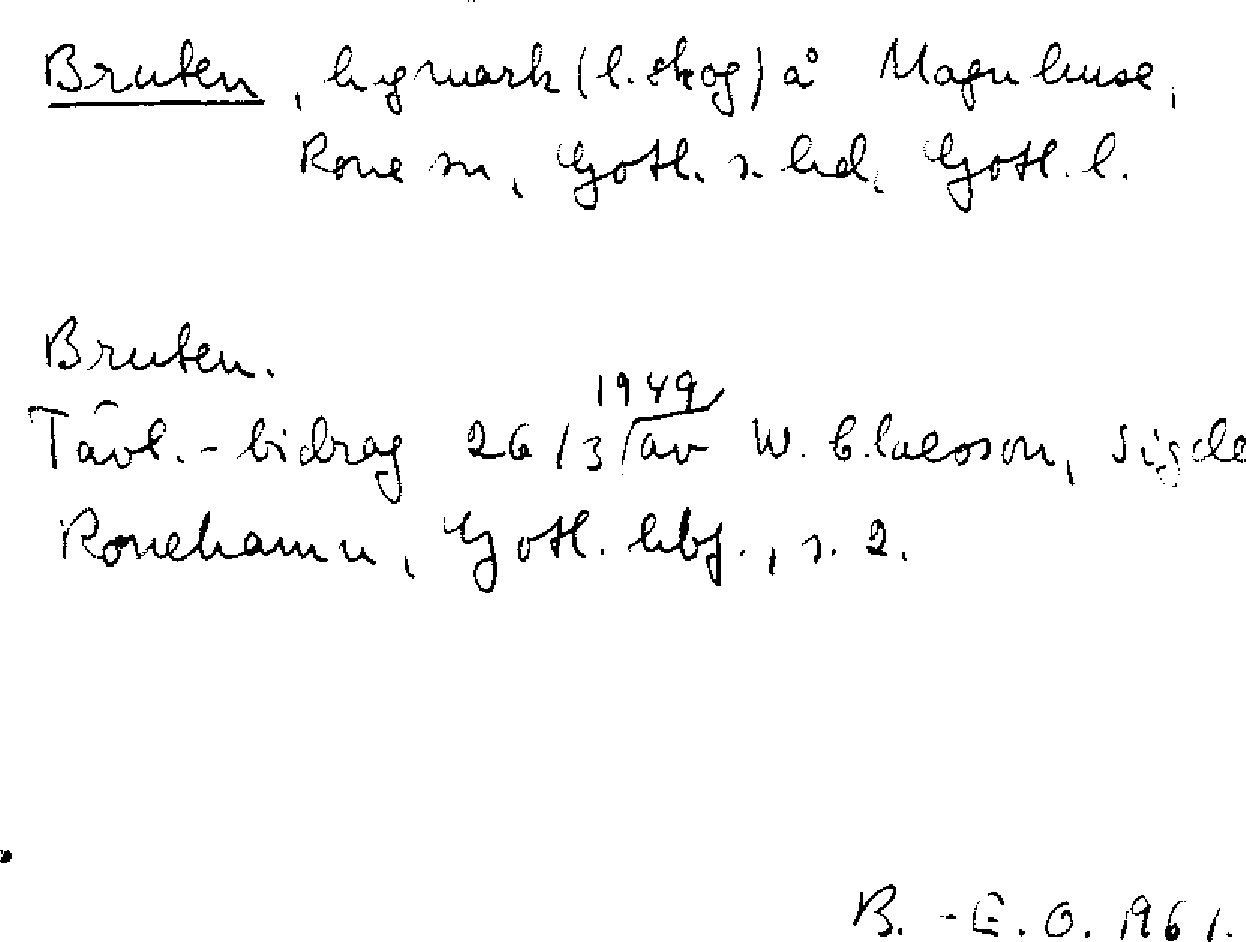 Bruten, hygmark (l. skog) å Magnhuse,
Rone sn, Gotl. s. hd, Gotl. l.
Bruten.
1949
Tävl.-bidrag 26/3 av W. Claesson, Sigde
Ronehamn, Gotl. hbf., s. 2.
B.-E. O. 1961.